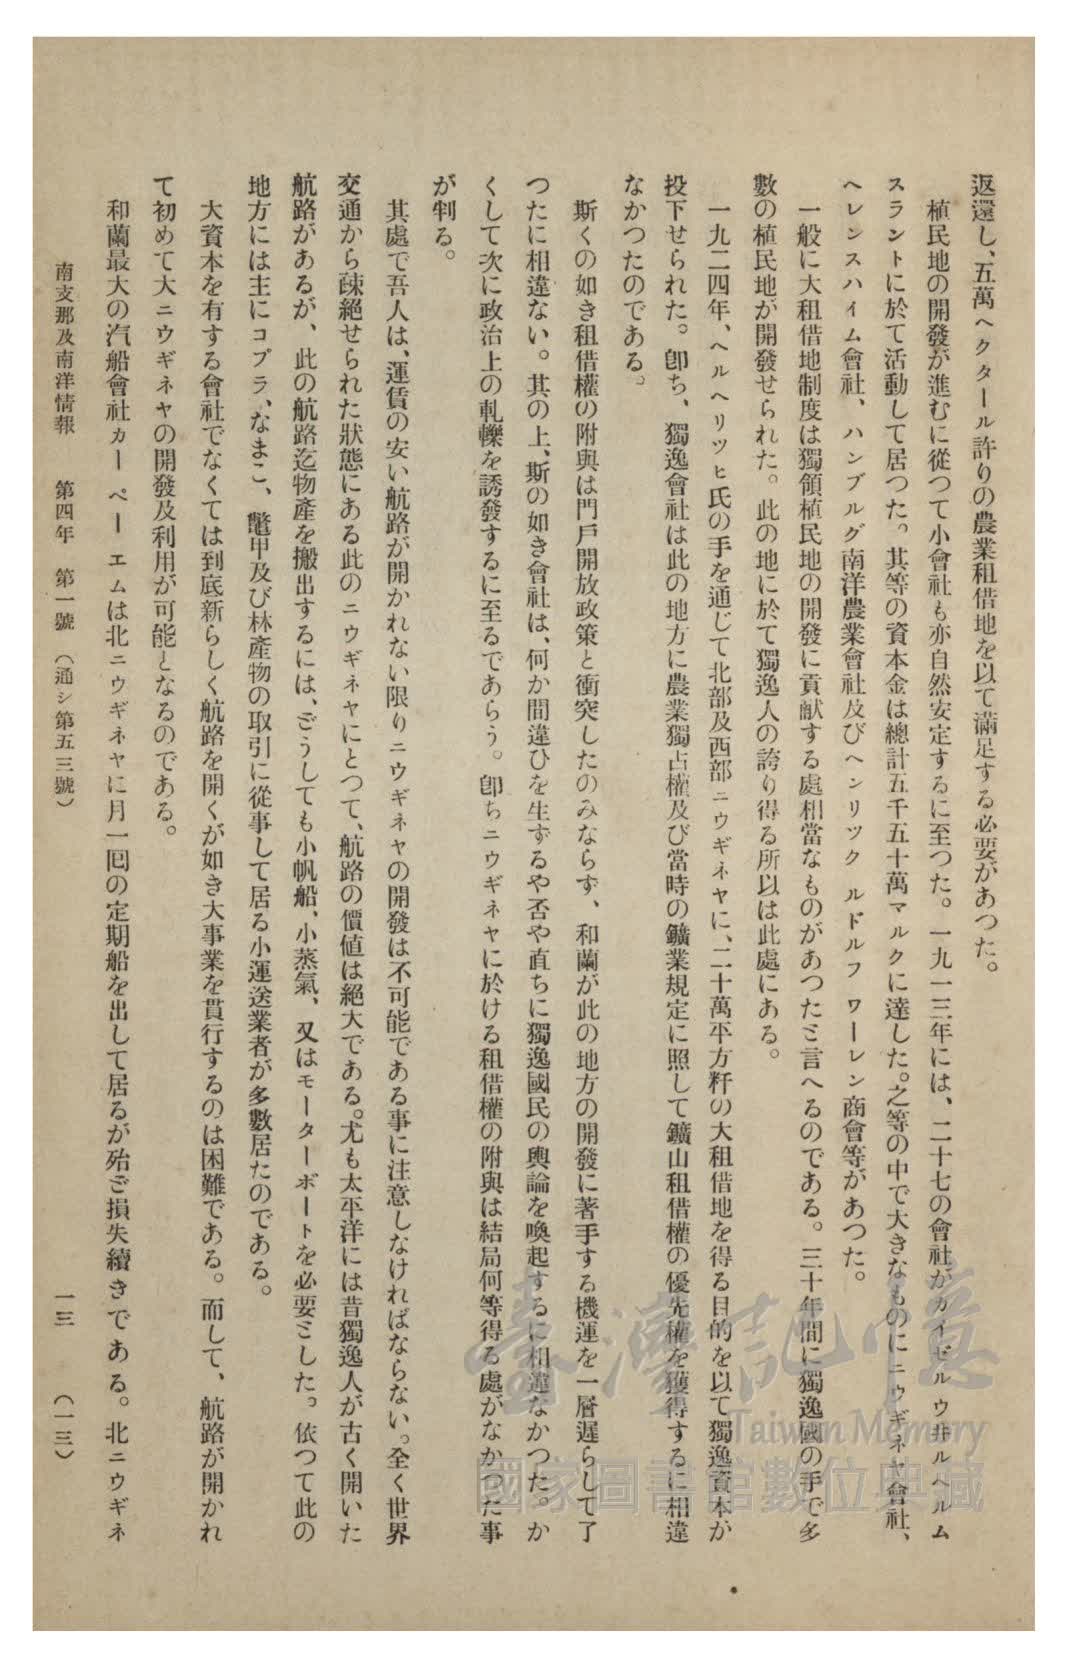 返還し、五萬ヘクタール許りの農業租借地を以て滿足する必要があつた。
植民地の開發が進むに從つて小會社も亦自然安定するに至つた。一九一三年には、二十七の會社がカイゼルウ井ルヘルム
スラントに於て活動して居つた。其等の資本金は總計五千五十萬マルクに達した。之等の中で大きなものにニウギネヤ會社、
ヘレンスハイム會社、ハンブルグ南洋農業會社及びヘンリツク ルドルフ ワーレン商會等があつた。
一般に大租借地制度は獨領植民地の開發に貢献する處相當なものがあつたと言へるのである。三十年間に獨逸國の手で多
數の植民地が開發せられた。此の地に於て獨逸人の誇り得る所以は此處にある。
一九二四年、ヘルヘリツヒ氏の手を通じて北部及西部ニウギネヤに、二十萬平方粁の大租借地を得る目的を以て獨逸資本が
投下せられた。卽ち、獨逸會社は此の地方に農業獨占權及び當時の鑛業規定に照して鑛山租借權の優先權を獲得するに相違
なかつたのである。
斯くの如き租借權の附與は門戶開放政策と衝突したのみならず、和蘭が此の地方の開發に著手する機運を一層遲らして了
つたに相違ない。其の上、斯の如き會社は、何か間違ひを生ずるや否や直ちに獨逸國民の輿論を喚起するに相違なかつた。か
くして次に政治上の軋轢を誘發するに至るであらう。卽ちニウギネヤに於ける租借權の附與は結局何等得る處がなかつた事
が判る。
其處で吾人は、運賃の安い航路が開かれない限りニウギネヤの開發は不可能である事に注意しなければならない。全く世界
交通から疎絕せられた狀態にある此のニウギネヤにとつて、航路の價値は絕大である。尤も太平洋には昔獨逸人が古く開いた
航路があるが、此の航路迄物產を搬出するには、どうしても小帆船、小蒸氣、又はモーターボートを必要とした。依つて此の
地方には主にコプラ、なまこ、鼈甲及び林產物の取引に從事して居る小運送業者が多數居たのである。
大資本を有する會社でなくては到底新らしく航路を開くが如き大事業を貫行するのは困難である。而して、航路が開かれ
て初めて大ニウギネヤの開發及利用が可能となるのである。
和蘭最大の汽船會社カー ペー エムは北ニウギネヤに月一囘の定期船を出して居るが殆ど損失續きである。北ニウギネ
南支那及南洋情報 第四年 第一號 (通シ第五三號) 一三 (一三)
臺灣記憶
Taiwan Memory
國家圖書館數位典藏